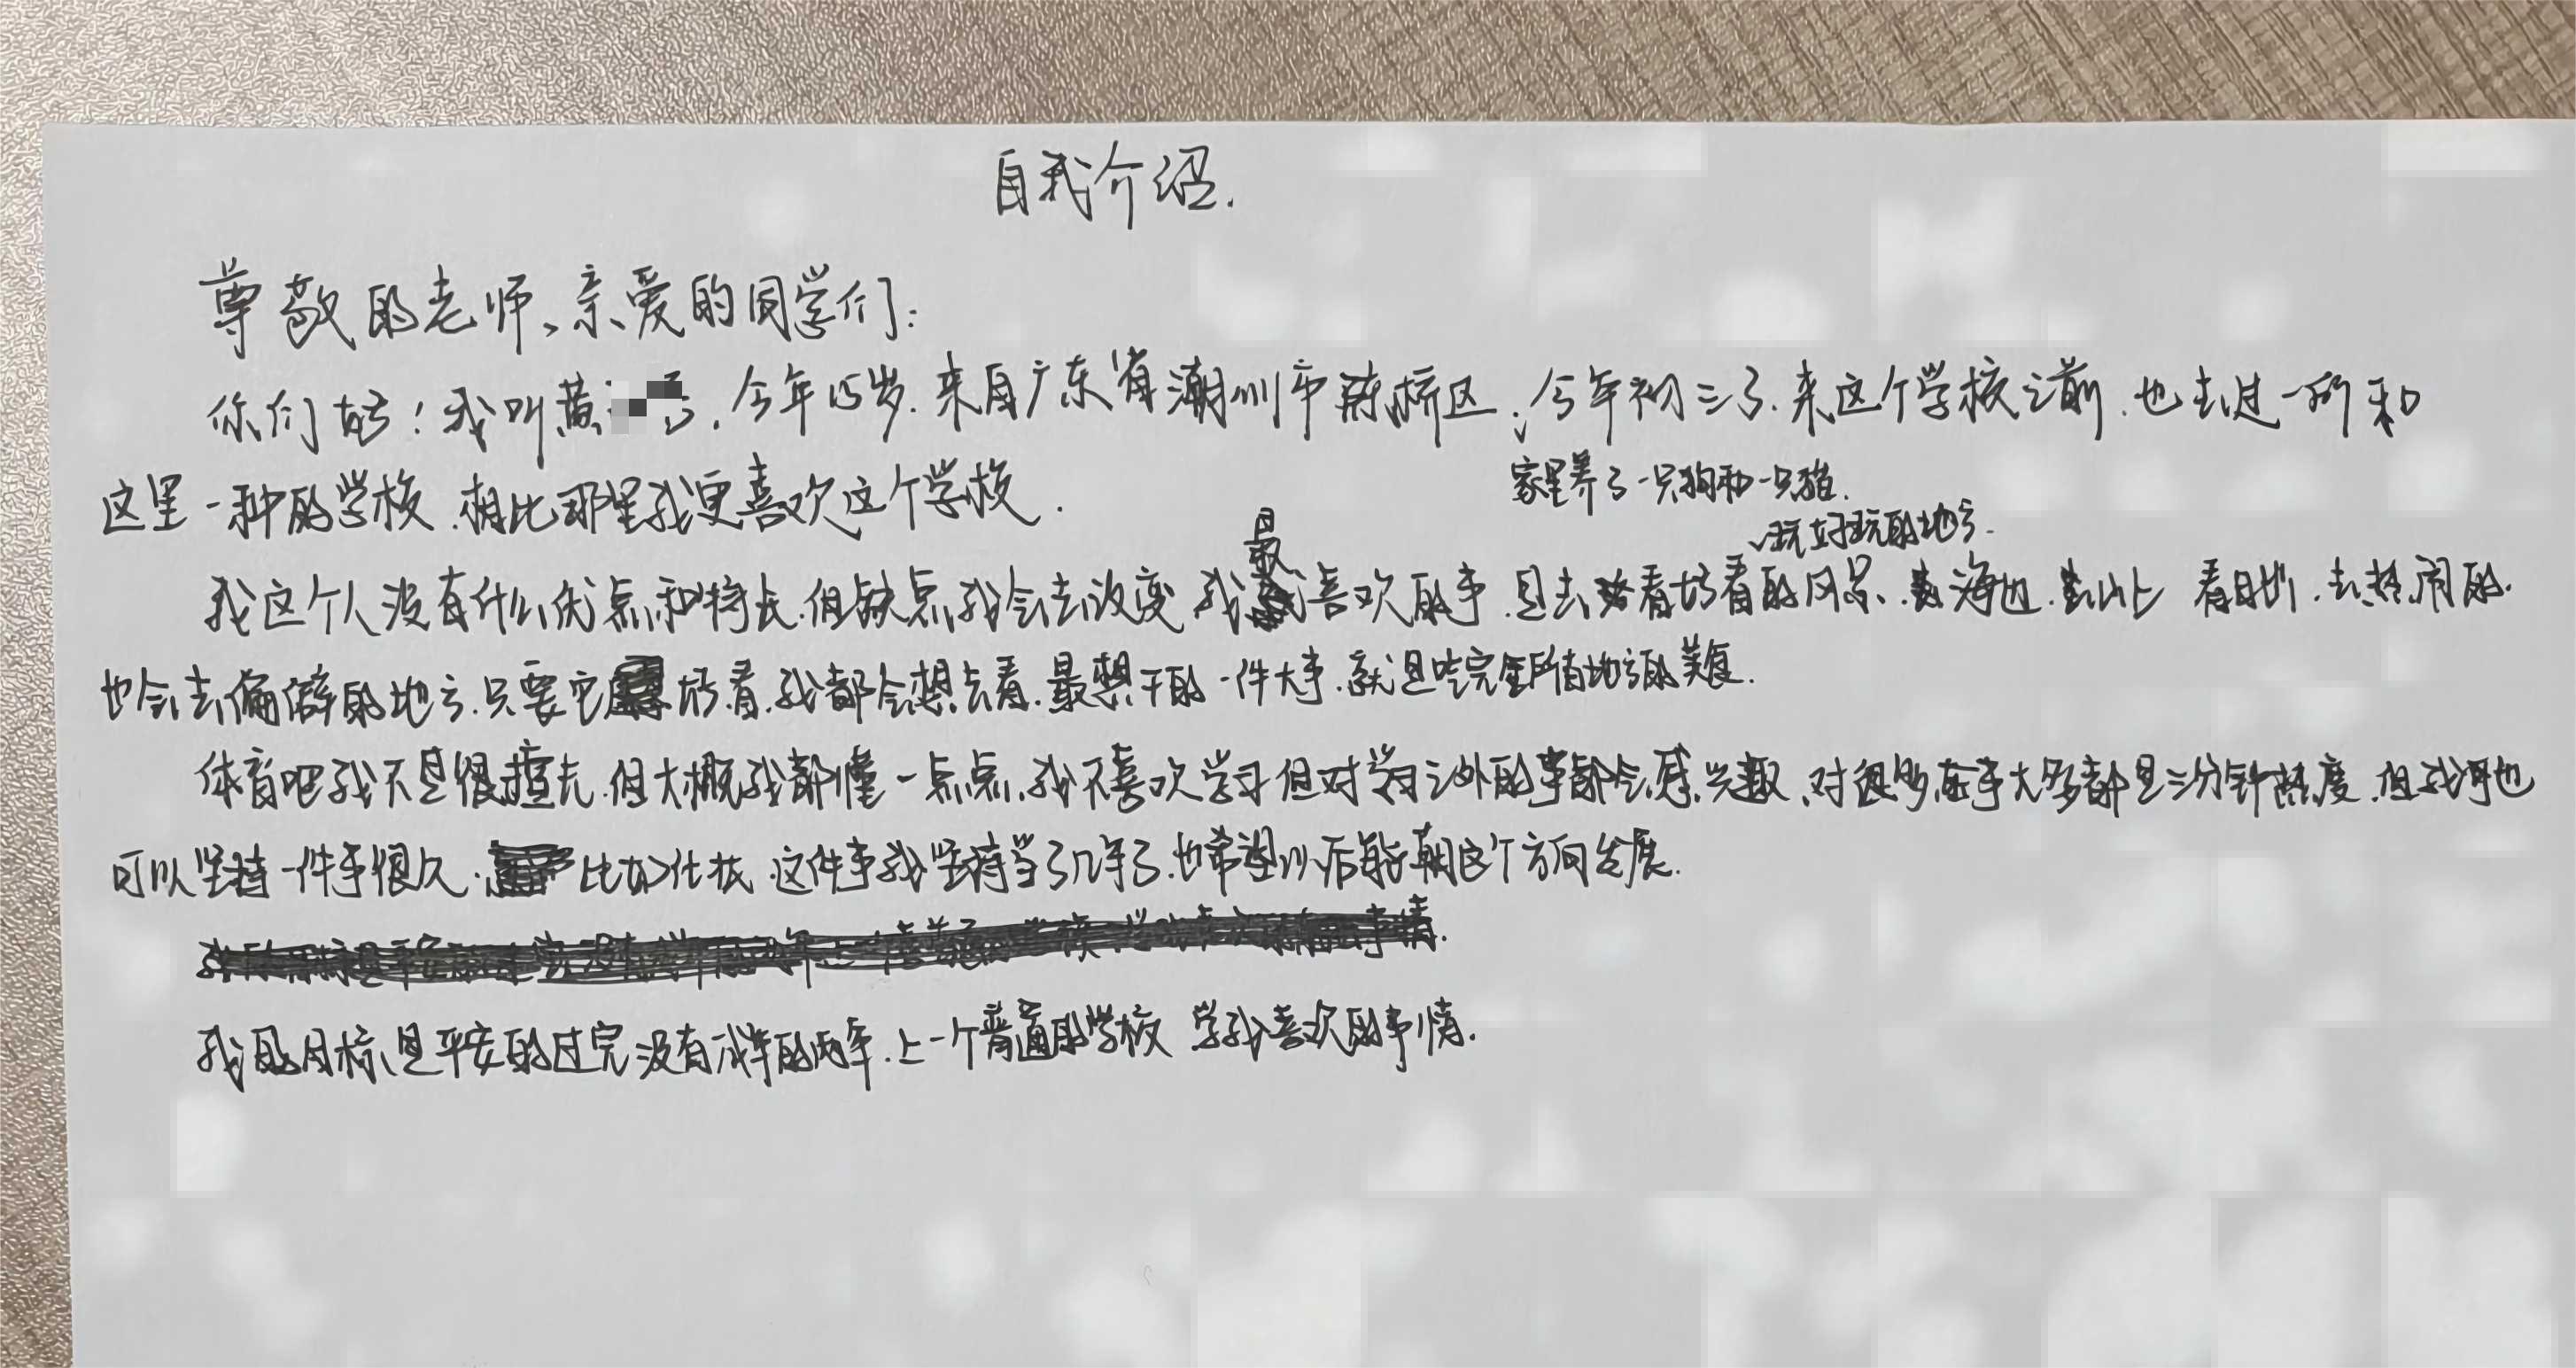 自我介绍.
尊敬的老师、亲爱的同学们:
你们好!我叫黄 ,今年15岁.来自广东省潮州市 桥区,今年初三了.来这个学校之前.也去过一所和
家里养了一只狗和一只猫.
这里一种的学校.相比那里我更喜欢这个学校.
玩好玩的地方.
最
我这个人没有什么优点和特长.但缺点我会去改变.我 喜欢的事.是去看好看的风景、海边.去山上 看日出.去热闹的.
也会去偏僻的地方.只要它 好看.我都会想去看.最想干的一件大事.就是吃完全所有地方的美食.
体育吧我不是很擅长.但大概我都懂一点点.我不喜欢学习但对学习之外的事都会感兴趣.对很多 事大多都是三分钟热度.但我 也
可以坚持一件事很久. 比如化妆.这件事我坚持当了几年了.也希望以后能朝这个方向发展.
我的目标是平安的过完没有成年的两年.上一个普通的学校 学我喜欢的事情.